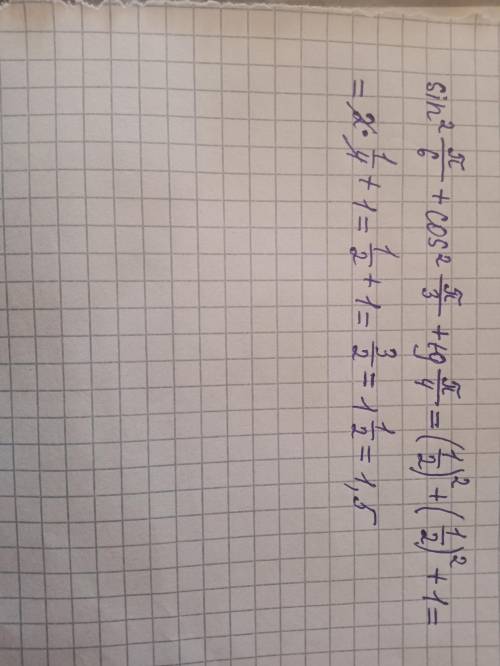 sin² π/6 + cos² π/3 + tg π/4 = (1/2)² + (1/2)² + 1 =
= 2·1/4 + 1 = 1/2 + 1 = 3/2 = 1 1/2 = 1,5